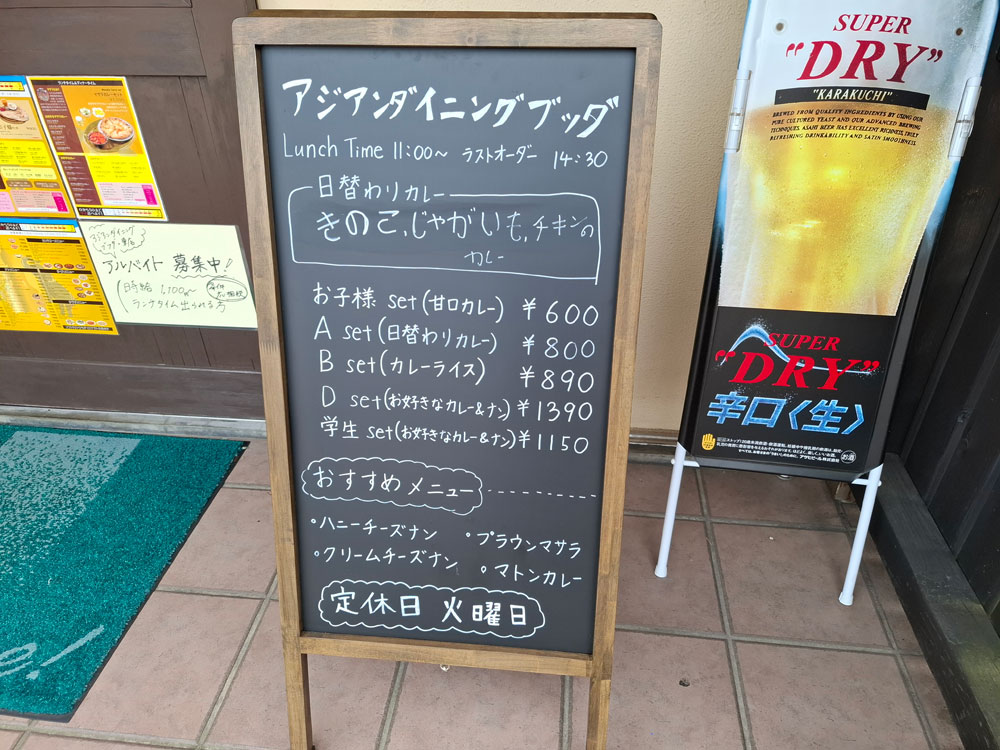 アジアンダイニングブッダ
Lunch Time 11:00〜 ラストオーダー 14:30
日替わりカレー
きのこ,じゃがいも,チキンの
カレー
お子様 set(甘口カレー) ¥600
A set(日替わりカレー) ¥800
B set(カレーライス) ¥890
D set(お好きなカレー&ナン) ¥1390
学生 set(お好きなカレー&ナン) ¥1150
おすすめ メニュー
・ハニーチーズナン ・プラウンマサラ
・クリームチーズナン ・マトンカレー
定休日 火曜日
アルバイト 募集中!
時給 1,100
ランチタイム出られる方
SUPER
"DRY"
"KARAKUCHI"
BREWED FROM QUALITY INGREDIENTS BY USING OUR
PURE CULTURED YEAST AND OUR ADVANCED BREWING
TECHNIQUES. ASAHI BEER HAS EXCELLENT RICHNESS, TRULY
REFRESHING DRINKABILITY AND SATIN SMOOTHNESS.
SUPER
"DRY"
辛口〈生〉
お酒